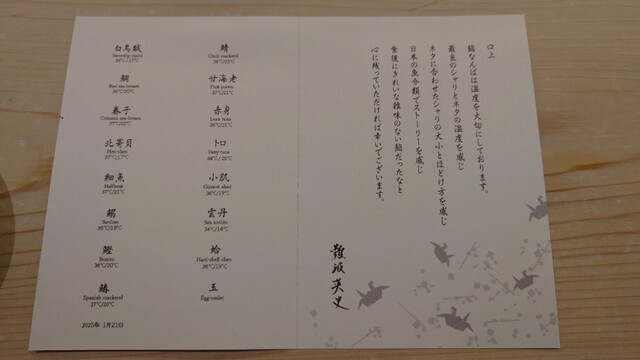 白烏賊
36℃/17℃
鯛
Red sea-bream
36℃/20℃
春子
Crimson sea-bream
37℃/22℃
北寄貝
Hen-clam
37℃/17℃
細魚
Halfbeak
37℃/21℃
鰯
Sardine
36℃/18℃
鰹
Bonito
38℃/20℃
鰆
Spanish mackerel
37℃/23℃
2025年 1月21日
鯖
Chub mackerel
38℃/23℃
甘海老
Pink prawn
37℃/21℃
赤身
Lean tuna
36℃/21℃
トロ
Fatty tuna
小肌
Gizzard shad
36℃/19℃
雲丹
Sea urchin
34℃/14℃
蛤
Hard-shell clam
36℃/19℃
玉
Egg omlet
口上
鮨なんばは温度を大切にしております。
最良のシャリとネタの温度を感じ
ネタに合わせたシャリの大小とほどけ方を感じ
日本の魚介類でストーリーを感じ
食後にきれいな雑味のない鮨だったなと
心に残っていただければ幸いでございます。
難波英史